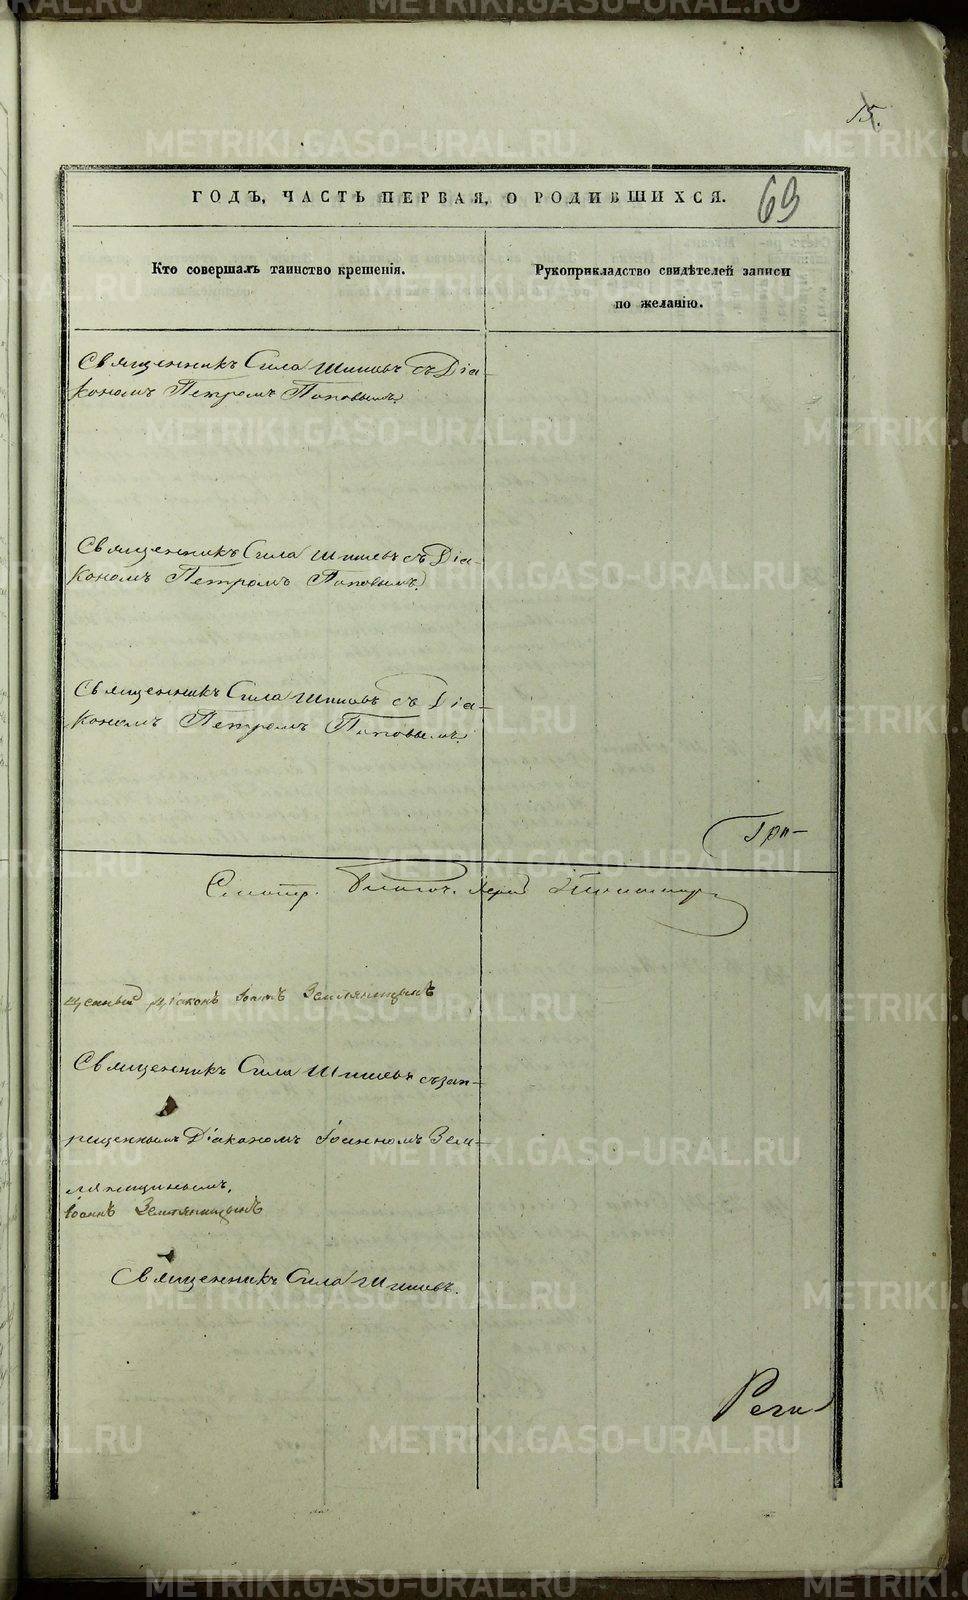 15.
ГОДЪ, ЧАСТЬ ПЕРВАЯ, О РОДИВШИХСЯ.
69
Кто совершалъ таинство крещенія.
Рукоприкладство свидѣтелей записи
по желанію.
Священникъ Сила Шишевъ съ Діа-
кономъ Петромъ Поповымъ.
Священникъ Сила Шишевъ съ Діа-
кономъ Петромъ Поповымъ.
Священникъ Сила Шишевъ съ Діа-
кономъ Петромъ Поповымъ.
Смотр. Благоч.
щенный Діаконъ Іоаннъ Земляницынъ
Священникъ Сила Шишевъ съ зап-
рещеннымъ Діакономъ Іоанномъ Зем-
ляницинымъ.
Іоаннъ Земляницынъ
Священникъ Сила Шишевъ.
METRIKI.GASO-URAL.RU